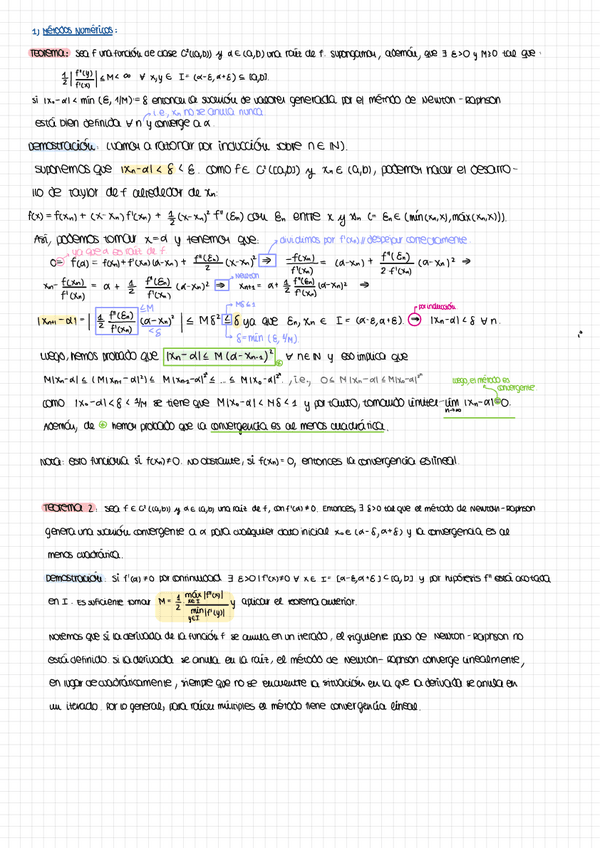 1) Métodos Numéricos:
Teorema: Sea f una función de clase C²([a,b]) y α∈(a,b) una raíz de f. Supongamos, además, que ∃ ε>0 y M≥0 tal que:
1/2 |f''(y)/f'(x)| ≤ M < ∞ ∀ x,y ∈ I = (α-ε,α+ε) ⊆ [a,b].
Si |x₀-α| < min {ε, 1/M} = δ entonces la sucesión de valores generada por el método de Newton-Raphson
i.e, xₙ no se anula nunca
está bien definida ∀ n y converge a α.
Demostración: (vamos a razonar por inducción sobre n∈ℕ).
Suponemos que |xₙ-α| < δ < ε. Como f∈ C²([a,b]) y xₙ∈(a,b), podemos hacer el desarro-
llo de Taylor de f alrededor de xₙ:
f(x) = f(xₙ) + (x-xₙ) f'(xₙ) + 1/2 (x-xₙ)² f''(ξₙ) con ξₙ entre x y xₙ (= ξₙ∈(min(xₙ,x), máx(xₙ,x))).
Así, podemos tomar x=α y tenemos que: dividimos por f'(xₙ) y despejar correctamente
ya que α es raíz de f
0 = f(α) = f(xₙ) + f'(xₙ)(α-xₙ) + f''(ξₙ)/2 (α-xₙ)² ⇒ -f(xₙ)/f'(xₙ) = (α-xₙ) + f''(ξₙ)/2·f'(xₙ) (α-xₙ)² ⇒
Newton
xₙ - f(xₙ)/f'(xₙ) = α + 1/2 f''(ξₙ)/f'(xₙ) (α-xₙ)² ⇒ xₙ₊₁ = α + 1/2 f''(ξₙ)/f'(xₙ) (α-xₙ)² ⇒
≤M Mδ≤1 por inducción
|xₙ₊₁-α| = |1/2 f''(ξₙ)/f'(xₙ) (α-xₙ)²| ≤ Mδ² ≤ δ ya que ξₙ, xₙ ∈ I = (α-ε,α+ε). ⇒ |xₙ-α| < δ ∀ n.
<δ δ=min {ε, 1/M}
Luego, hemos probado que |xₙ-α| ≤ M (α-xₙ₋₁)² ∀ n∈ℕ y eso implica que
M|xₙ-α| ≤ (M|xₙ₋₁-α|)² ≤ M|xₙ₋₂-α|²² ≤ ... ≤ M|x₀-α|²ⁿ, i.e., 0 ≤ M|xₙ-α| ≤ M|x₀-α|²ⁿ
Luego, es método es convergente
Como |x₀-α| < δ < 1/M se tiene que M|x₀-α| < Mδ < 1 y por tanto, tomando límites lim n→∞ |xₙ-α| = 0.
Además, de hemos probado que la convergencia es al menos cuadrática.
Nota: esto funciona si f(xₙ)≠0. No obstante, si f(xₙ)=0, entonces la convergencia es lineal.
Teorema 2: Sea f∈ C²([a,b]) y α∈(a,b) una raíz de f, con f'(α)≠0. Entonces, ∃ δ>0 tal que el método de Newton-Raphson
genera una sucesión convergente a α para cualquier dato inicial x₀∈(α-δ,α+δ) y la convergencia es al
menos cuadrática.
Demostración: Si f'(α)≠0 por continuidad ∃ ε>0 | f'(x)≠0 ∀ x∈ I = [α-ε,α+ε] ⊂ [a,b] y por hipótesis f'' está acotada
en I. Es suficiente tomar M = 1/2 máx x∈I |f''(x)| / min y∈I |f'(y)| y aplicar el teorema anterior.
Notemos que si la derivada de la función f se anula en un iterado, el siguiente paso de Newton-Raphson no
está definido. Si la derivada se anula en la raíz, el método de Newton-Raphson converge linealmente,
en lugar de cuadráticamente, siempre que no se encuentre la situación en la que la derivada se anula en
un iterado. Por lo general, para raíces múltiples el método tiene convergencia lineal.